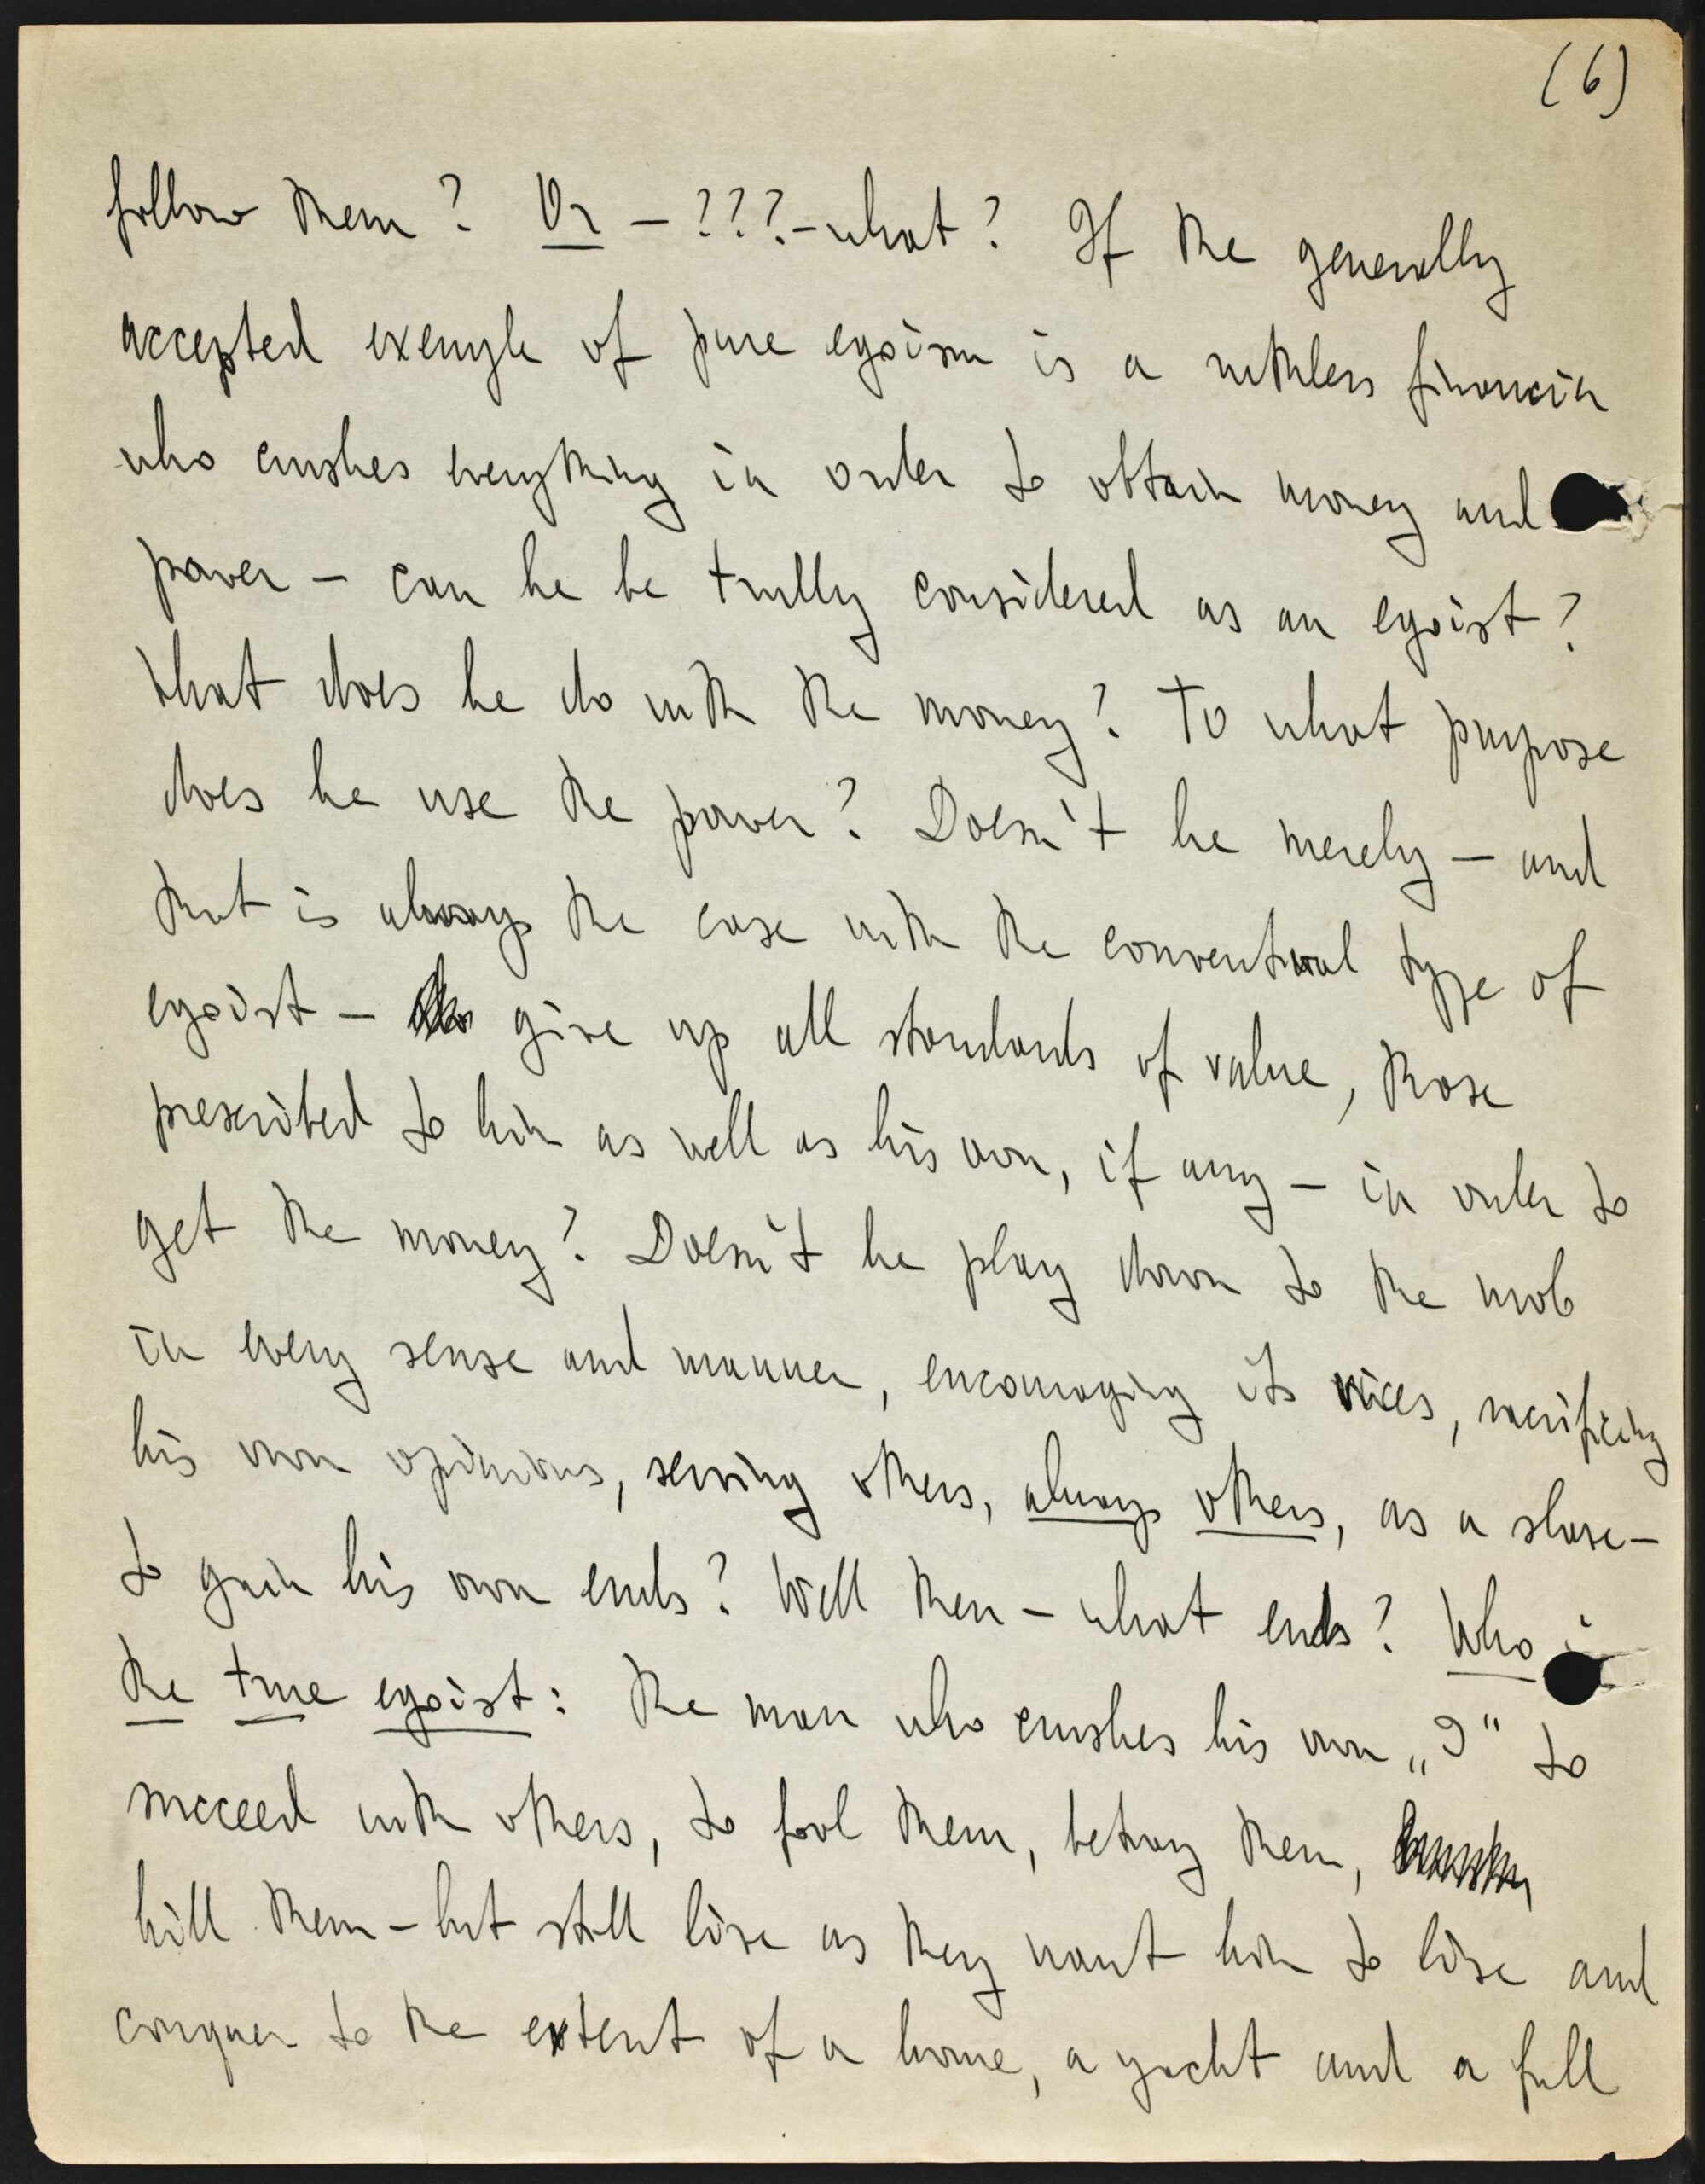 (6)
follow them? Or – ???.– what? If the generally
accepted example of pure egoism is a ruthless financier
who crushes everything in order to obtain money and
power – can he be trully considered as an egoist?
What does he do with the money? To what purpose
does he use the power? Doesn't he merely – and
that is always the case with the conventional type of
egoist – give up all standards of value, those
prescribed to him as well as his own, if any – in order to
get the money? Doesn't he play down to the mob
in every sense and manner, encouraging its vices, sacrificing
his own opinions, serving others, always others, as a slave –
to gain his own ends? Well then – what ends? Who
the true egoist: the man who crushes his own „I" to
succeed with others, to fool them, betray them,
kill them – but still live as they want him to live and
conquer to the extent of a home, a yacht and a full